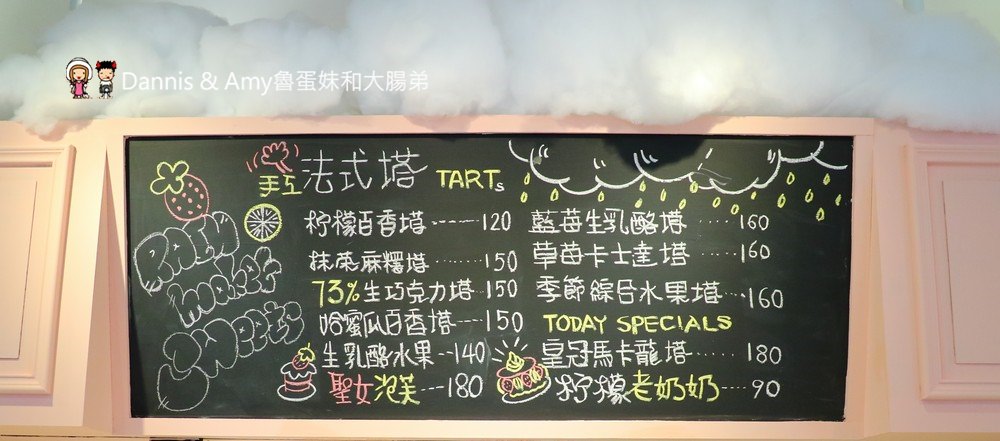 Dannis & Amy魯蛋妹和大腸弟
手工 法式塔 TARTs
RAIN
MAKES
SWEETS
柠檬百香塔-----120
抹茶麻糬塔......150
73%生巧克力塔---150
哈蜜瓜百香塔---150
生乳酪水果--140
聖女泡芙---180
藍莓生乳酪塔.....160
草莓卡士達塔.....160
季節綜合水果塔...160
TODAY SPECIALS
皇冠馬卡龍塔......180
柠檬老奶奶....90